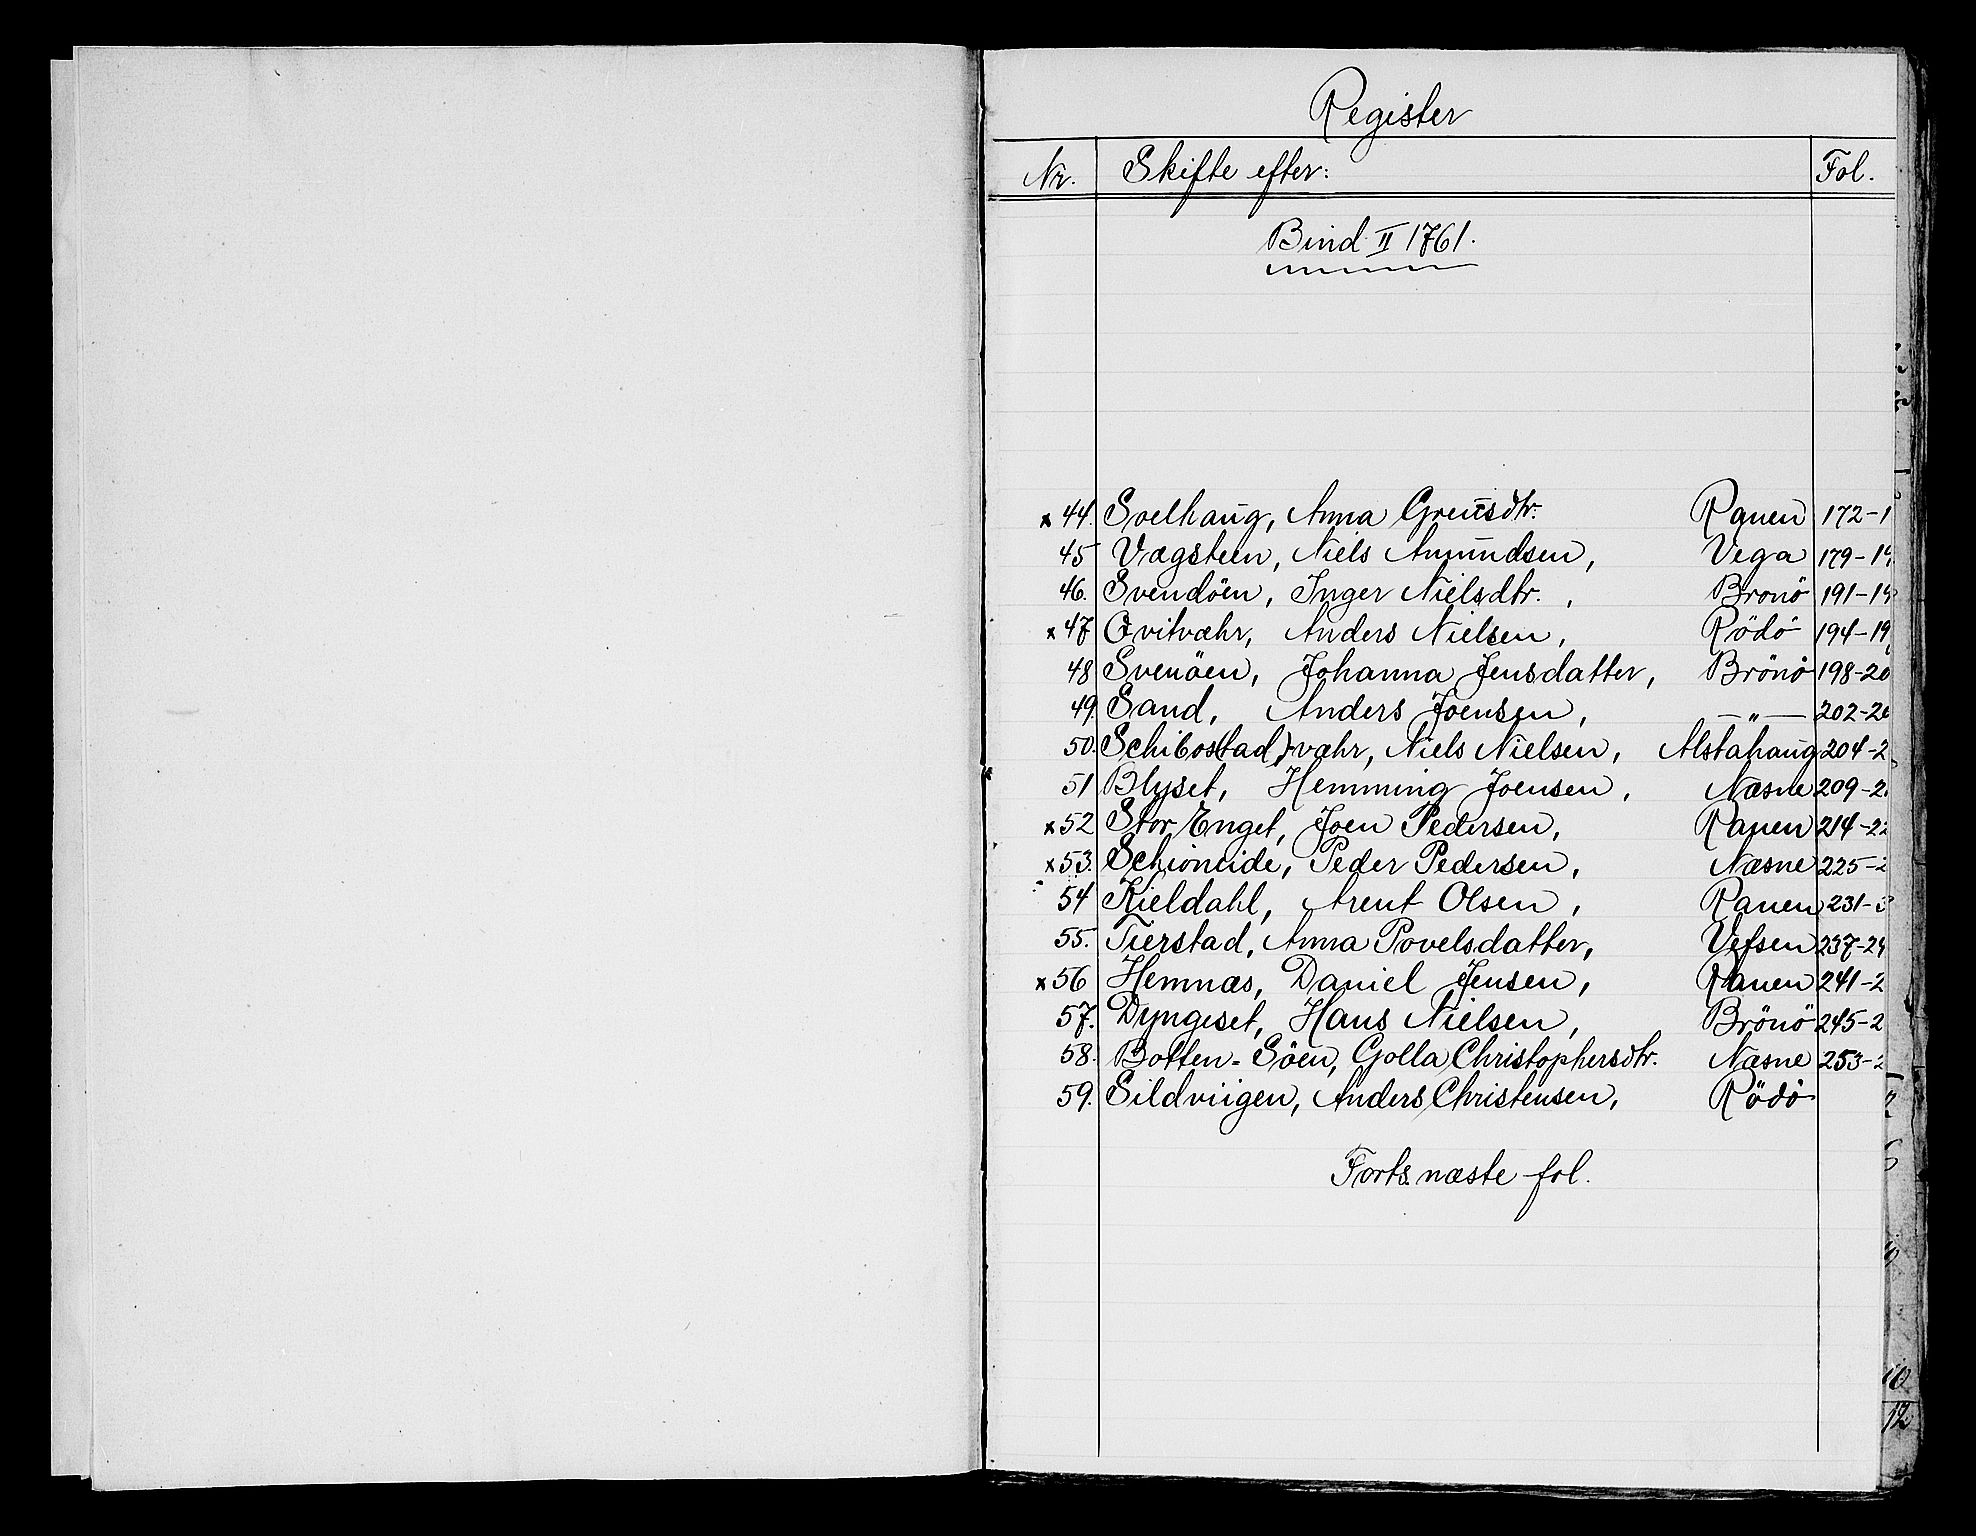 Register
Nr. Skifte efter: Fol.
Bind II 1761.
x 44. Svelhaug, Anna Greusdtr. Ranen 172-1
45 Vægsteen, Niels Amundsen, Vega 179-19
46. Svendöen, Inger Nielsdtr. , Brönö 191-19
x 47 Qvitvæhr, Anders Nielsen, Rödö 194-19
48 Svenöen, Johanna Jensdatter, Brönö 198-20
49. Sand, Anders Joensen, — " — 202-20
50. Schibos(tad)væhr, Niels Nielsen, Alstahaug 204-2
51 Blyset, Hemming Joensen, Næsne 209-2
x 52 Stor Enget, Joen Pedersen, Ranen 214-22
x 53. Schioneide, Peder Pedersen, Næsne 225-2
54 Kieldahl, Arent Olsen, Ranen 231-3
55. Tierstad, Anna Povelsdatter, Vefsen 237-24
x 56 Hemnæs, Daniel Jensen, Ranen 241-2
57. Dyngeset, Hans Nielsen, Brönö 245-2
58. Botten-Söen, Golla Christophersdtr. Næsne 253-2
59. Sildviigen, Anders Christensen, Rödö
Forts. næste fol.
10
12